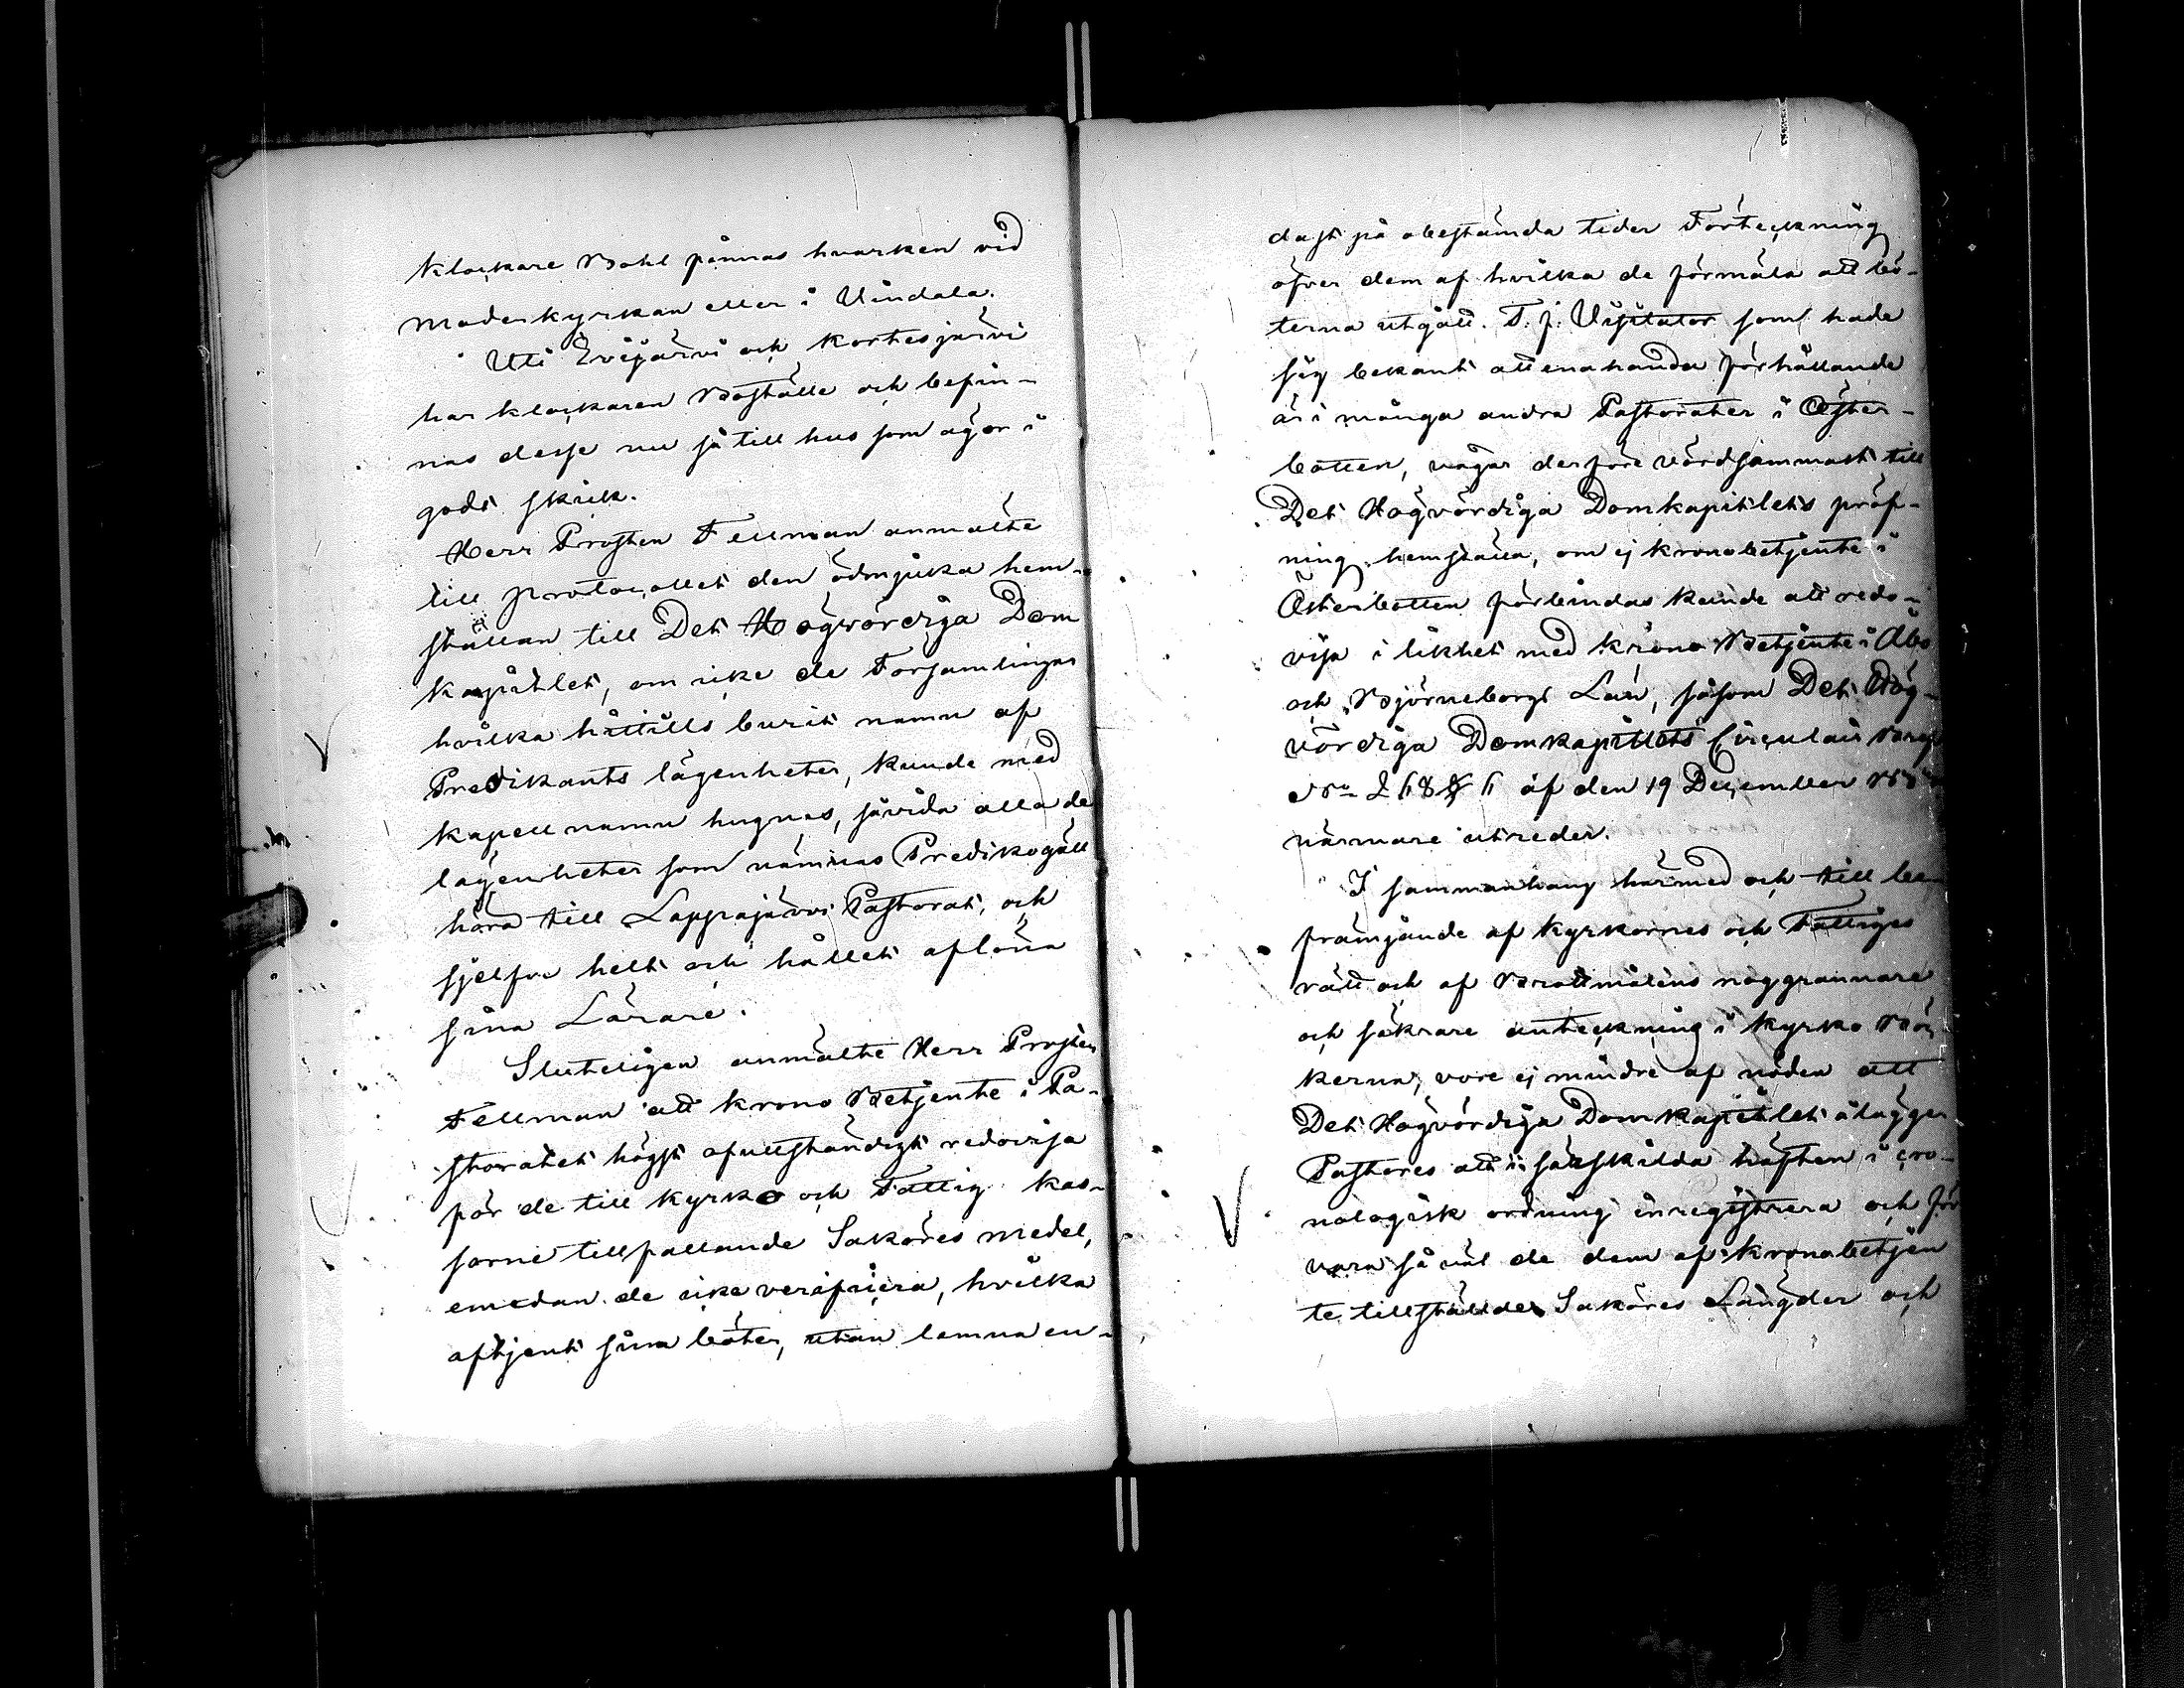 klockare Bohl finnas hvarken vid
Moderkyrkan eller i Vindala.
Uti Evijärvi och Kortesjärvi
har klockaren Boställe och befin-
nas desse nu så till hus som ägor i
godt skick.
Herr Prosten Fellman anmälte
till Protocollet den ödmjuka hem-
ställan till Det Högvördiga Dom
kapitlet, om icke de Församlingar
hvilka hittills burit namn af
Predikants lägenheter, kunde med
kapell namn hugnas, såvida alla de
lägenheter som nämnas Predikogäll
höra till Lappajärvi Pastorat, och
sjelfve helt och hållet aflöna
sina Lärare.
Sluteligen anmälte Herr Prosten
Fellman att krono Betjente i Pa-
storatet högst ofullständigt redovisa
för de till kyrko och Fattig kas-
sorne tillfallande Saköres medel,
emedan de icke verificera, hvilka
aftjent sina böter, utan lemna en-
dast på obestämda tider Förteckning
öfver dem af hvilka de förmäla att bö-
terna utgått. T. f. Visitator som hade
sig bekant att enahanda förhållande
är i många andra Pastorater i Öster-
botten, vågar derföre vördsammast till
Det Högvördiga Domkapitlets pröf-
ning hemställa, om ej kronobetjente i
Österbotten förbindas kunde att redo-
visa i likhet med krono Betjente i Åbo
och Björneborgs Län, såsom Det Hög-
vördiga Domkapitlets Circulair
N:o 268 § 6 af den 19 December
närmare utreder.
I sammanhang härmed och till
främjande af kyrkornes och Fattiges
rätt och af Brottmålens noggrannare
och säkrare anteckning i kyrko Böc-
kerna, vore ej mindre af nöden att
Det Högvördiga Domkapitlet ålägger
Pastores att i särskilda häften i cro-
nologisk ordning inregistrera och för
vara så väl de dem af kronobetjen
te tillställde Saköres Längder och